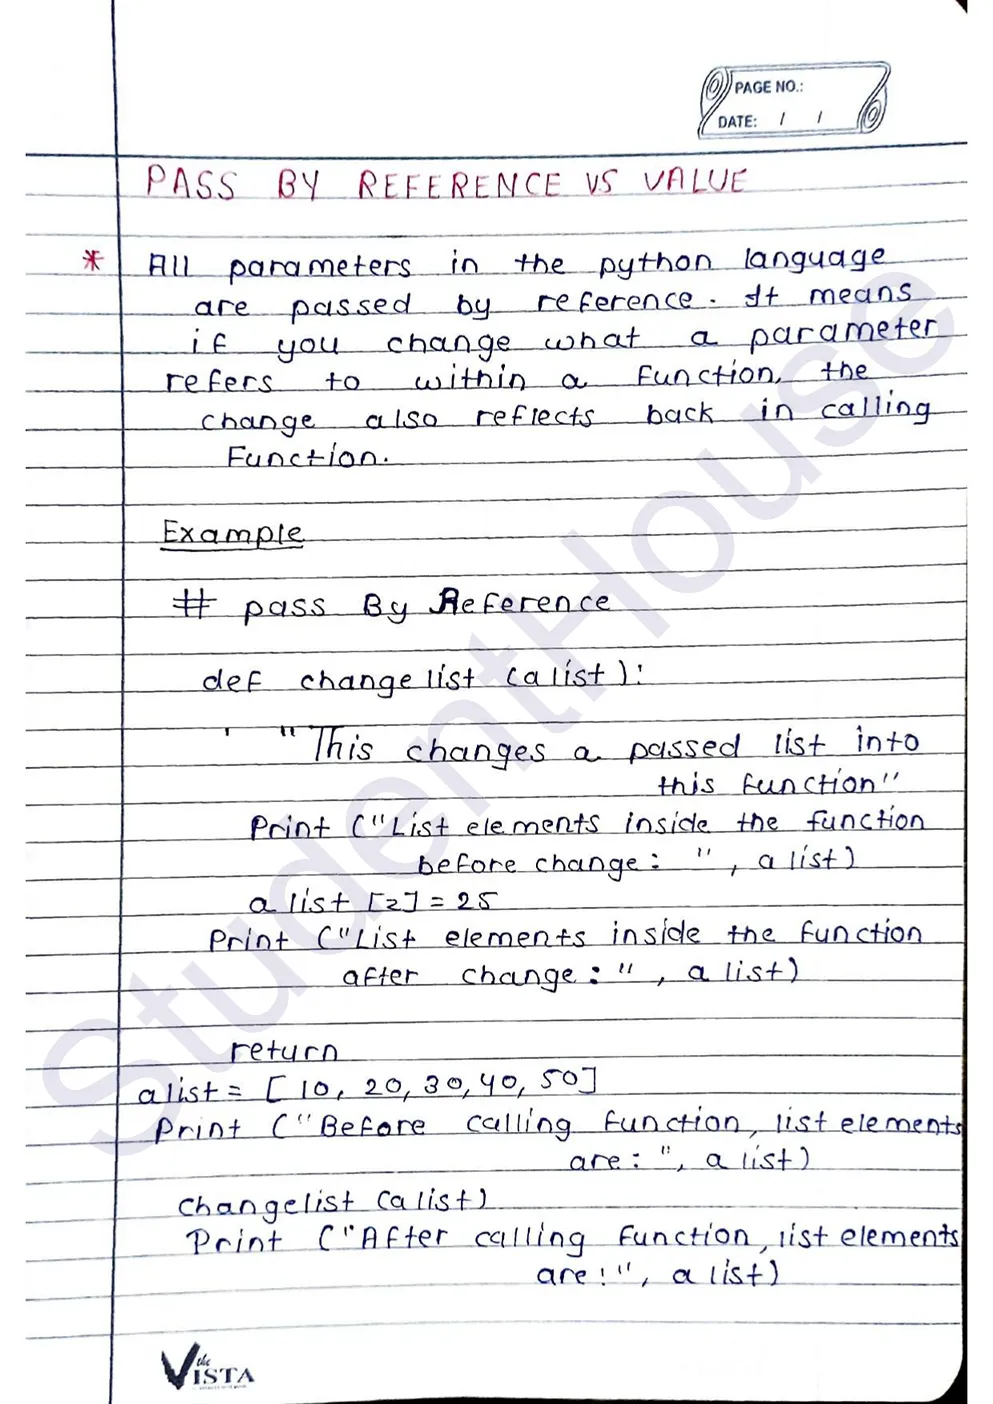 PAGE NO.:
DATE: / /
PASS BY REFERENCE VS VALUE
* All parameters in the python language
are passed by reference. It means
if you change what a parameter
refers to within a function, the
change also reflects back in calling
Function.
Example
# pass By Reference
def changelist (alist):
' "This changes a passed list into
this function"
Print ("List elements inside the function
before change: ", alist)
alist [2] = 25
Print ("List elements inside the function
after change: ", alist)
return
alist = [10, 20, 30, 40, 50]
Print ("Before calling function, list elements
are: ", alist)
changelist (alist)
Print ("After calling function, list elements
are: ", alist)
StudentHouse
the VISTA